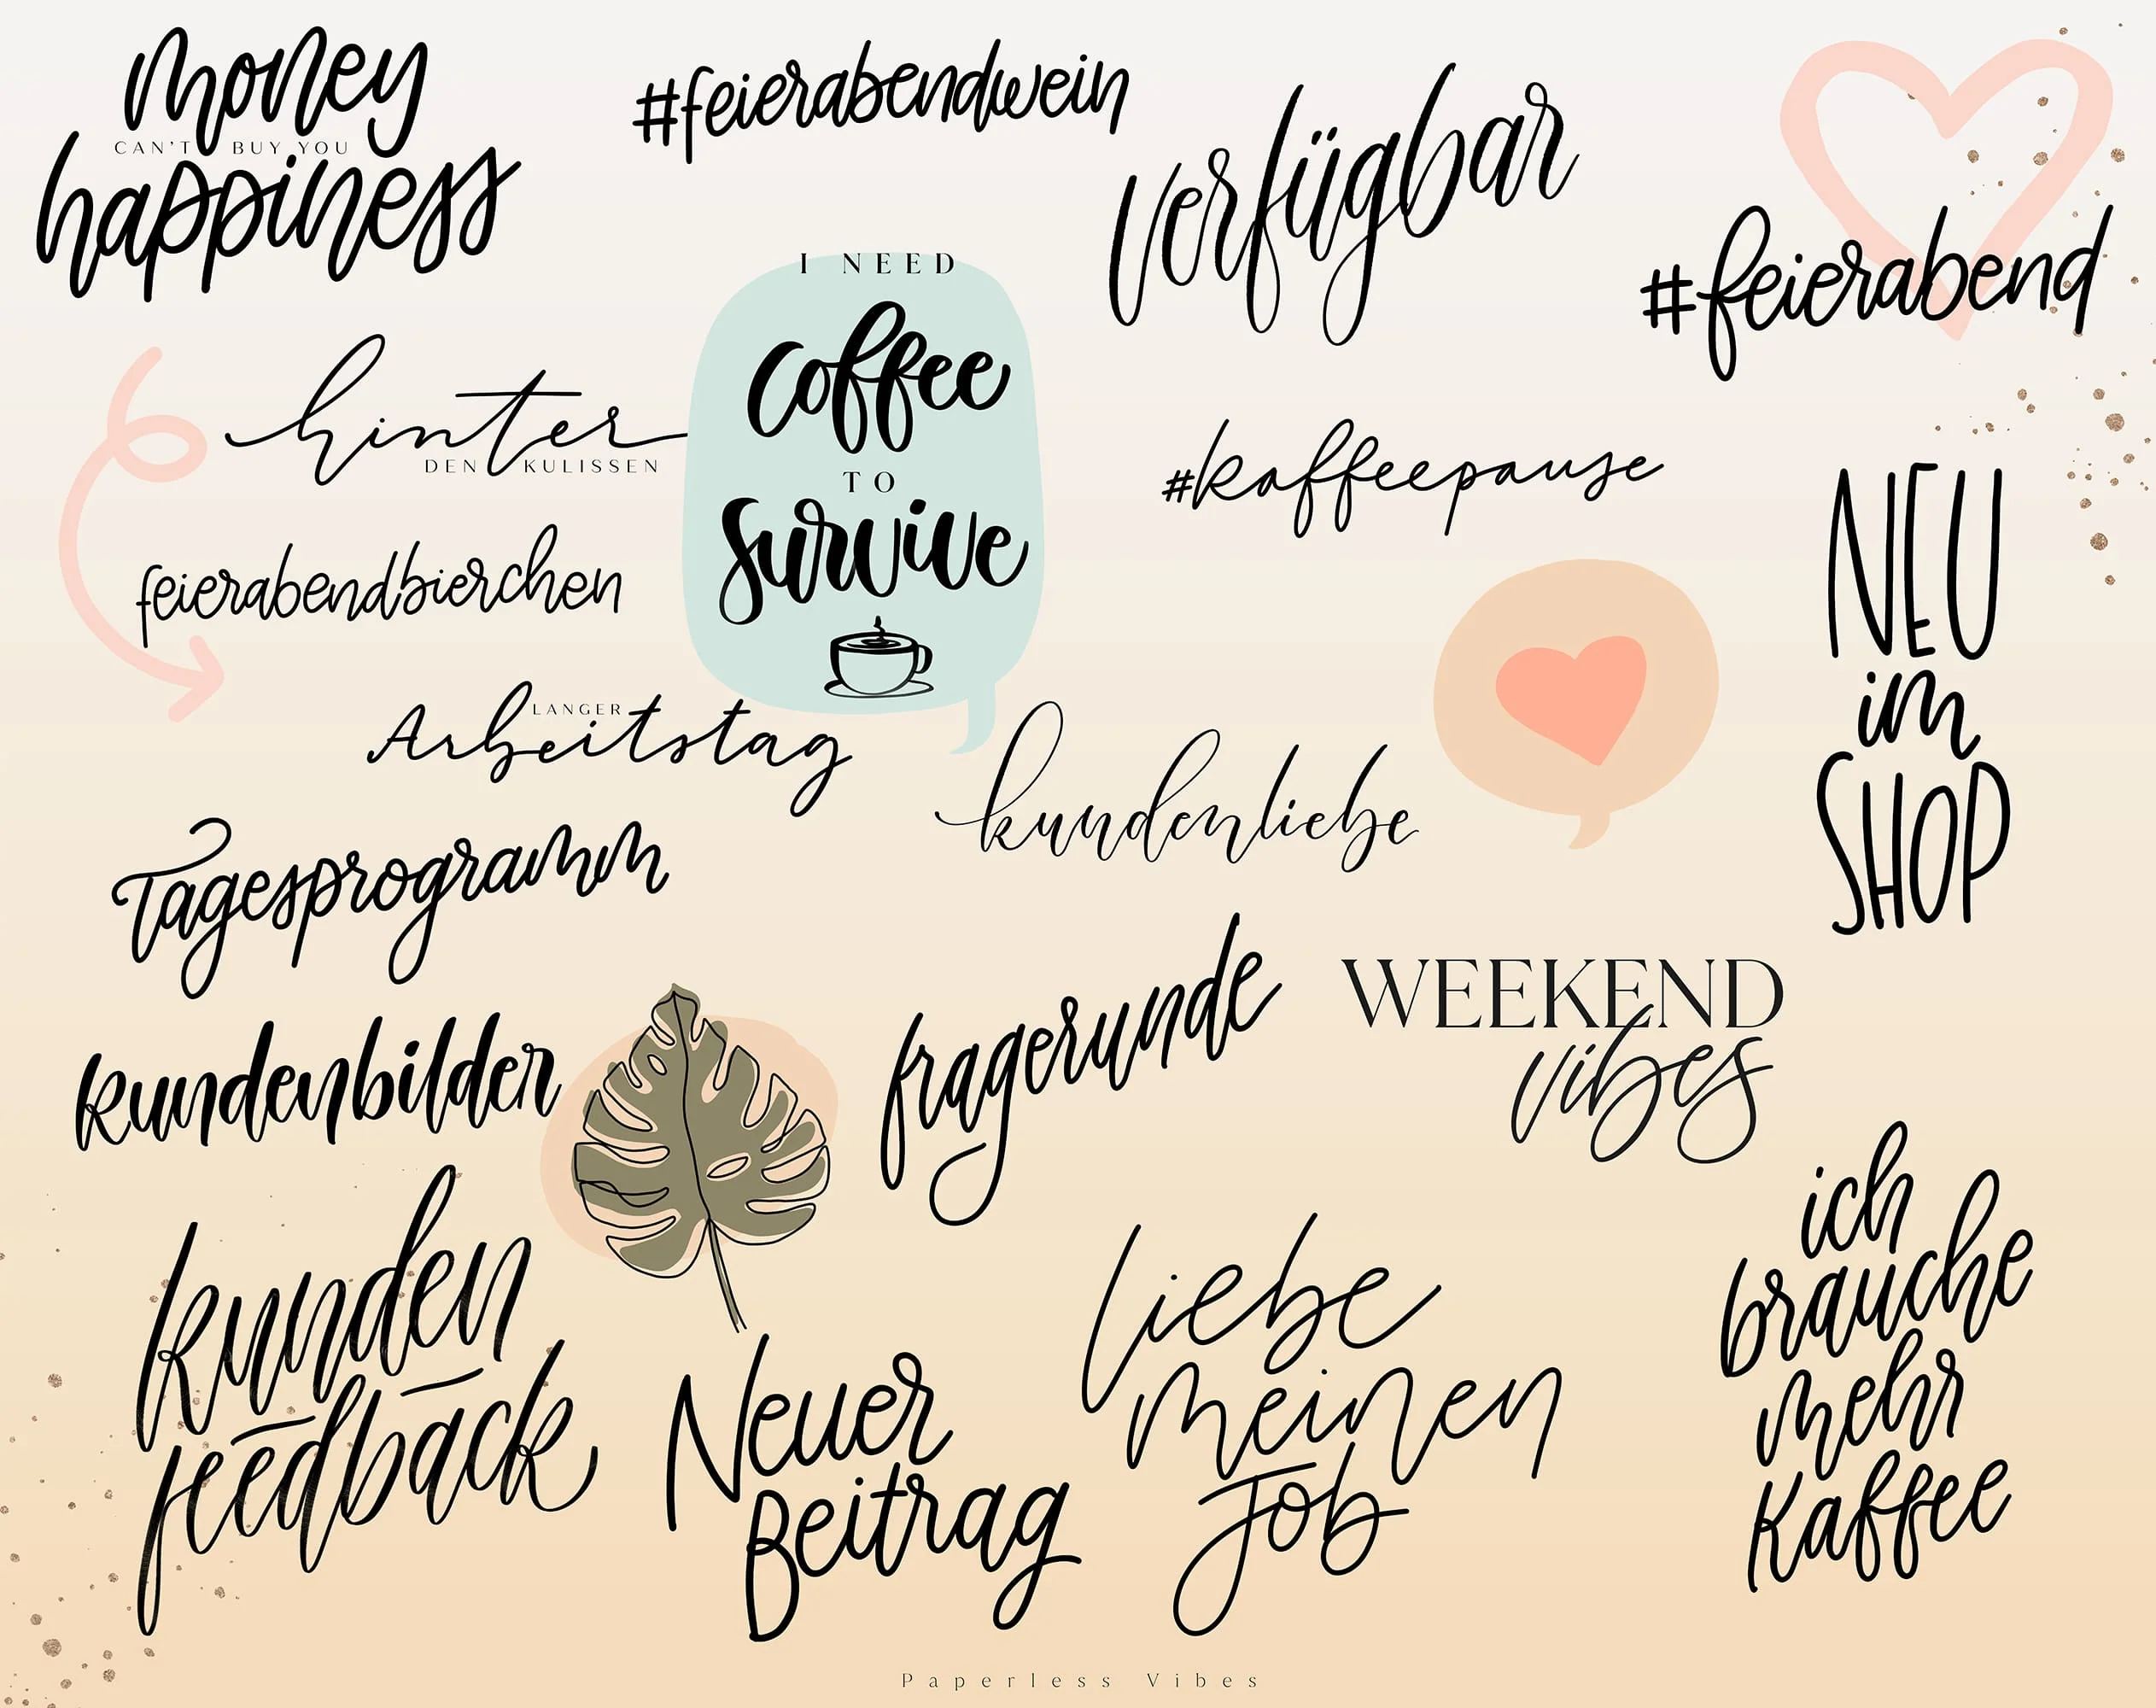 money
CAN'T BUY YOU
happiness
#feierabendwein
verfügbar
#feierabend
I NEED
coffee
TO
survive
hinter
DEN KULISSEN
#kaffeepause
NEU
im
SHOP
feierabendbierchen
LANGER
Arbeitstag
kundenliebe
Tagesprogramm
fragerunde
WEEKEND
vibes
kundenbilder
kunden
feedback
Neuer
Beitrag
Liebe
meinen
Job
ich
brauche
mehr
Kaffee
Paperless Vibes